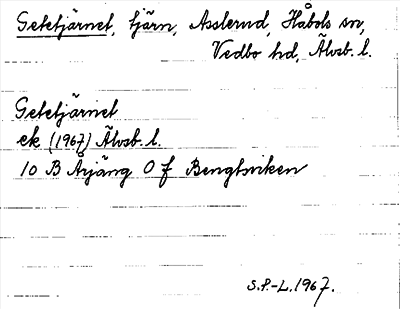 Getetjärnet, tjärn, Asslerud, Håbols sn,
Vedbo hd, Älvsb. l.
Getetjärnet
ek (1967) Älvsb. l.
10 B Årjäng O f Bengtsviken
S.P.-L. 1967.